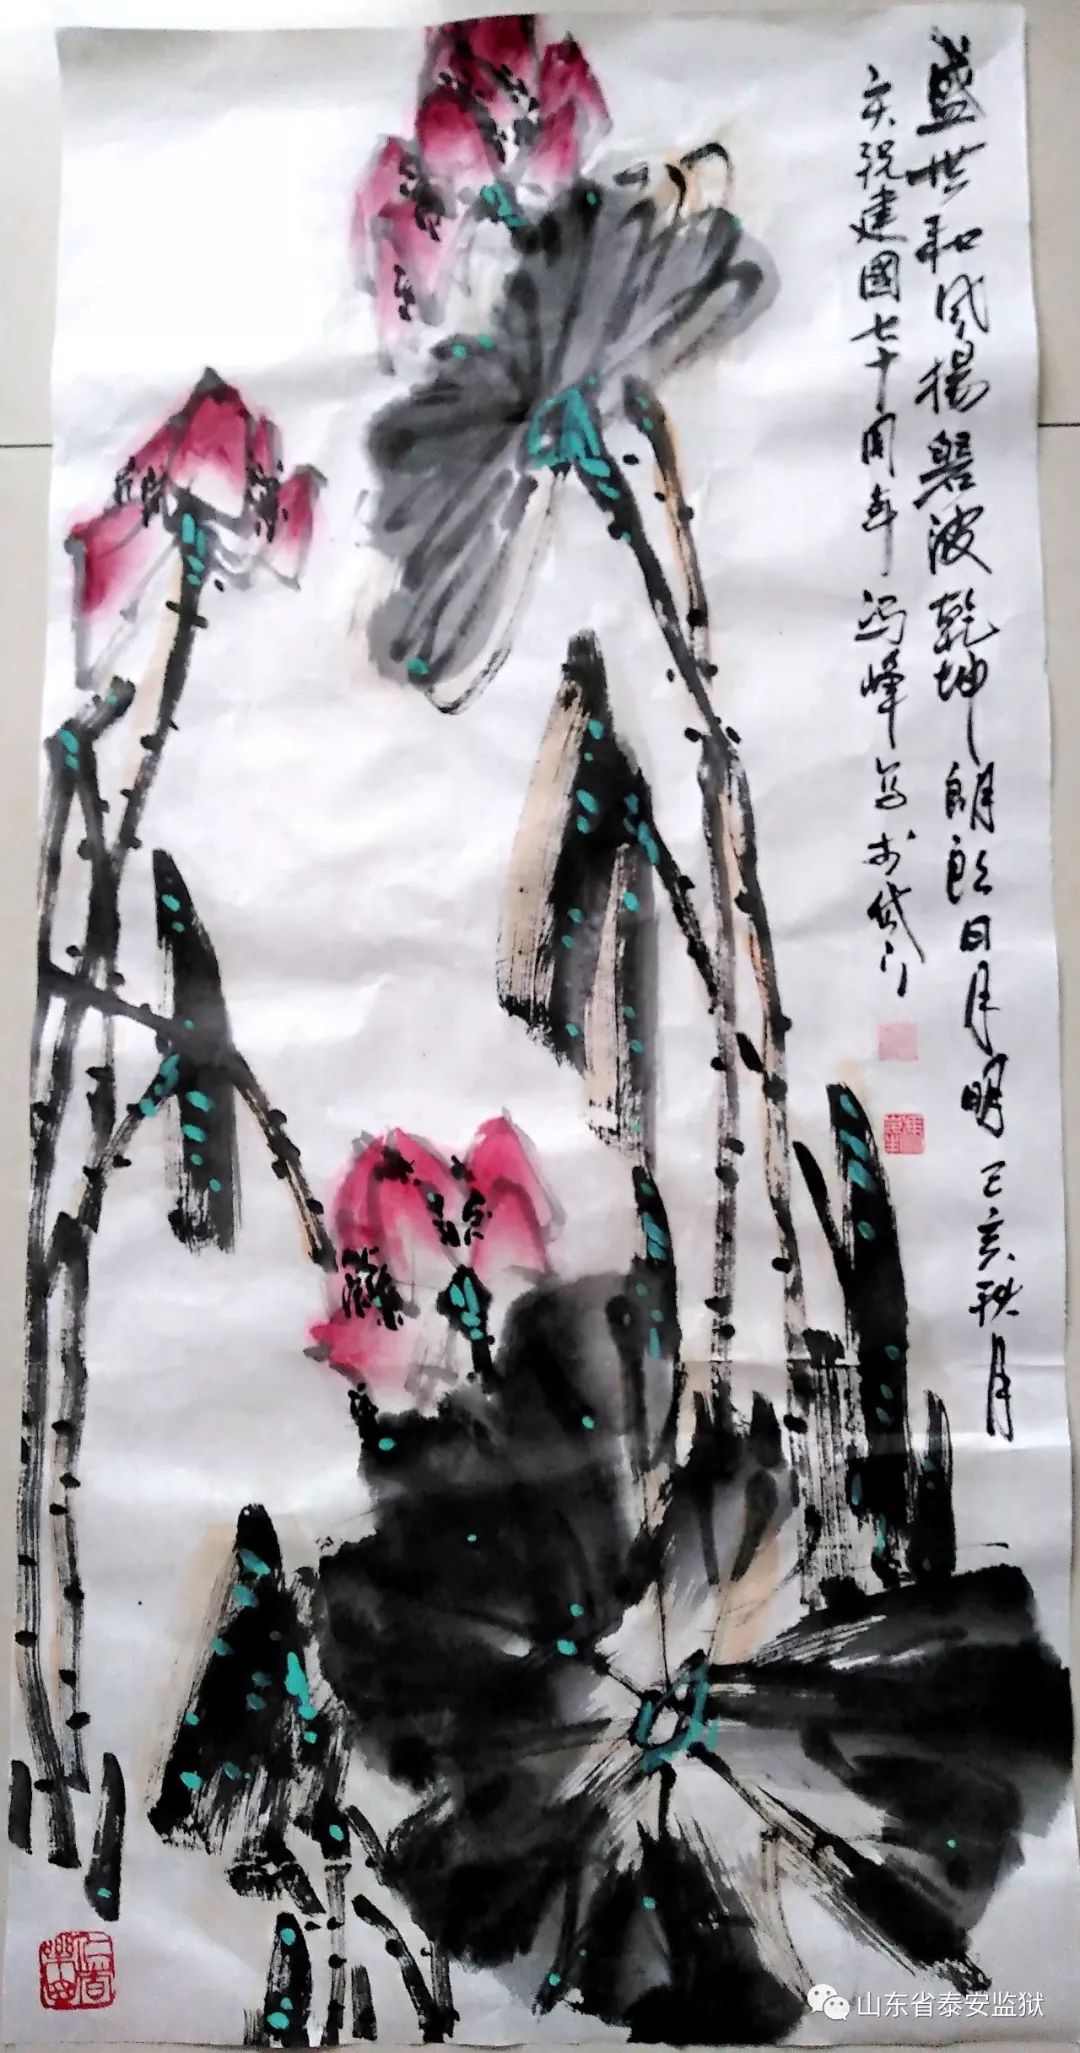 盛世和风扬碧波乾坤朗朗日月明己亥秋月
庆祝建國七十周年冯峰写于岱下
山东省泰安监狱